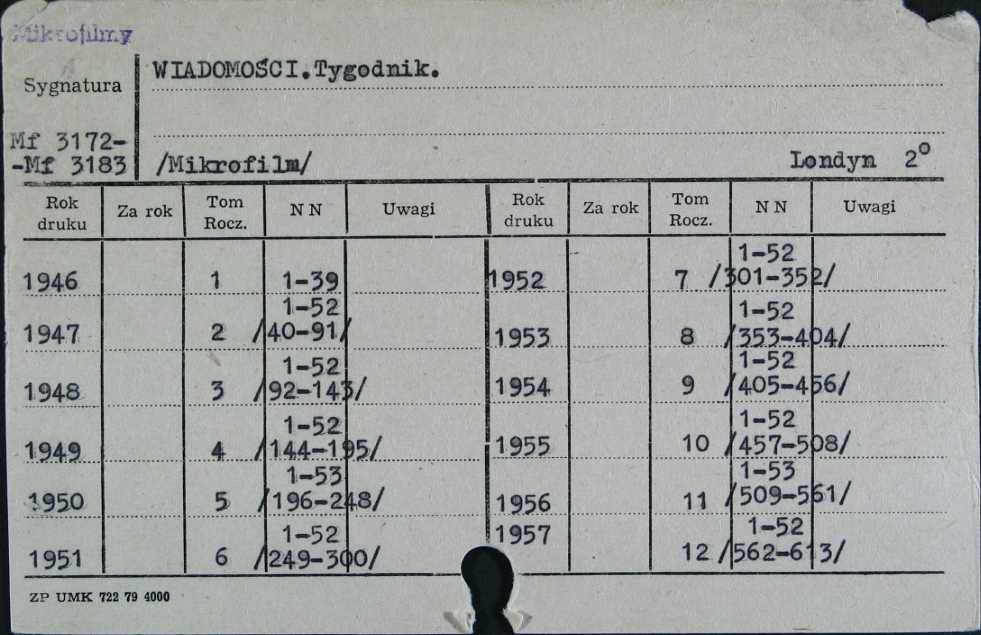 Mikrofilmy
Sygnatura WIADOMOŚCI.Tygodnik.
Mf 3172-
-Mf 3183 /Mikrofilm/ Londyn 2°
Rok druku Za rok Tom Rocz. N N Uwagi Rok druku Za rok Tom Rocz. N N Uwagi
1946 1 1-39 1952 7 1-52 /301-352/
1947 2 1-52 /40-91/ 1953 8 1-52 /353-404/
1948 3 1-52 /92-143/ 1954 9 1-52 /405-456/
1949 4 1-52 /144-195/ 1955 10 1-52 /457-508/
1950 5 1-53 /196-248/ 1956 11 1-53 /509-561/
1951 6 1-52 /249-300/ 1957 12 1-52 /562-613/
ZP UMK 722 79 4000